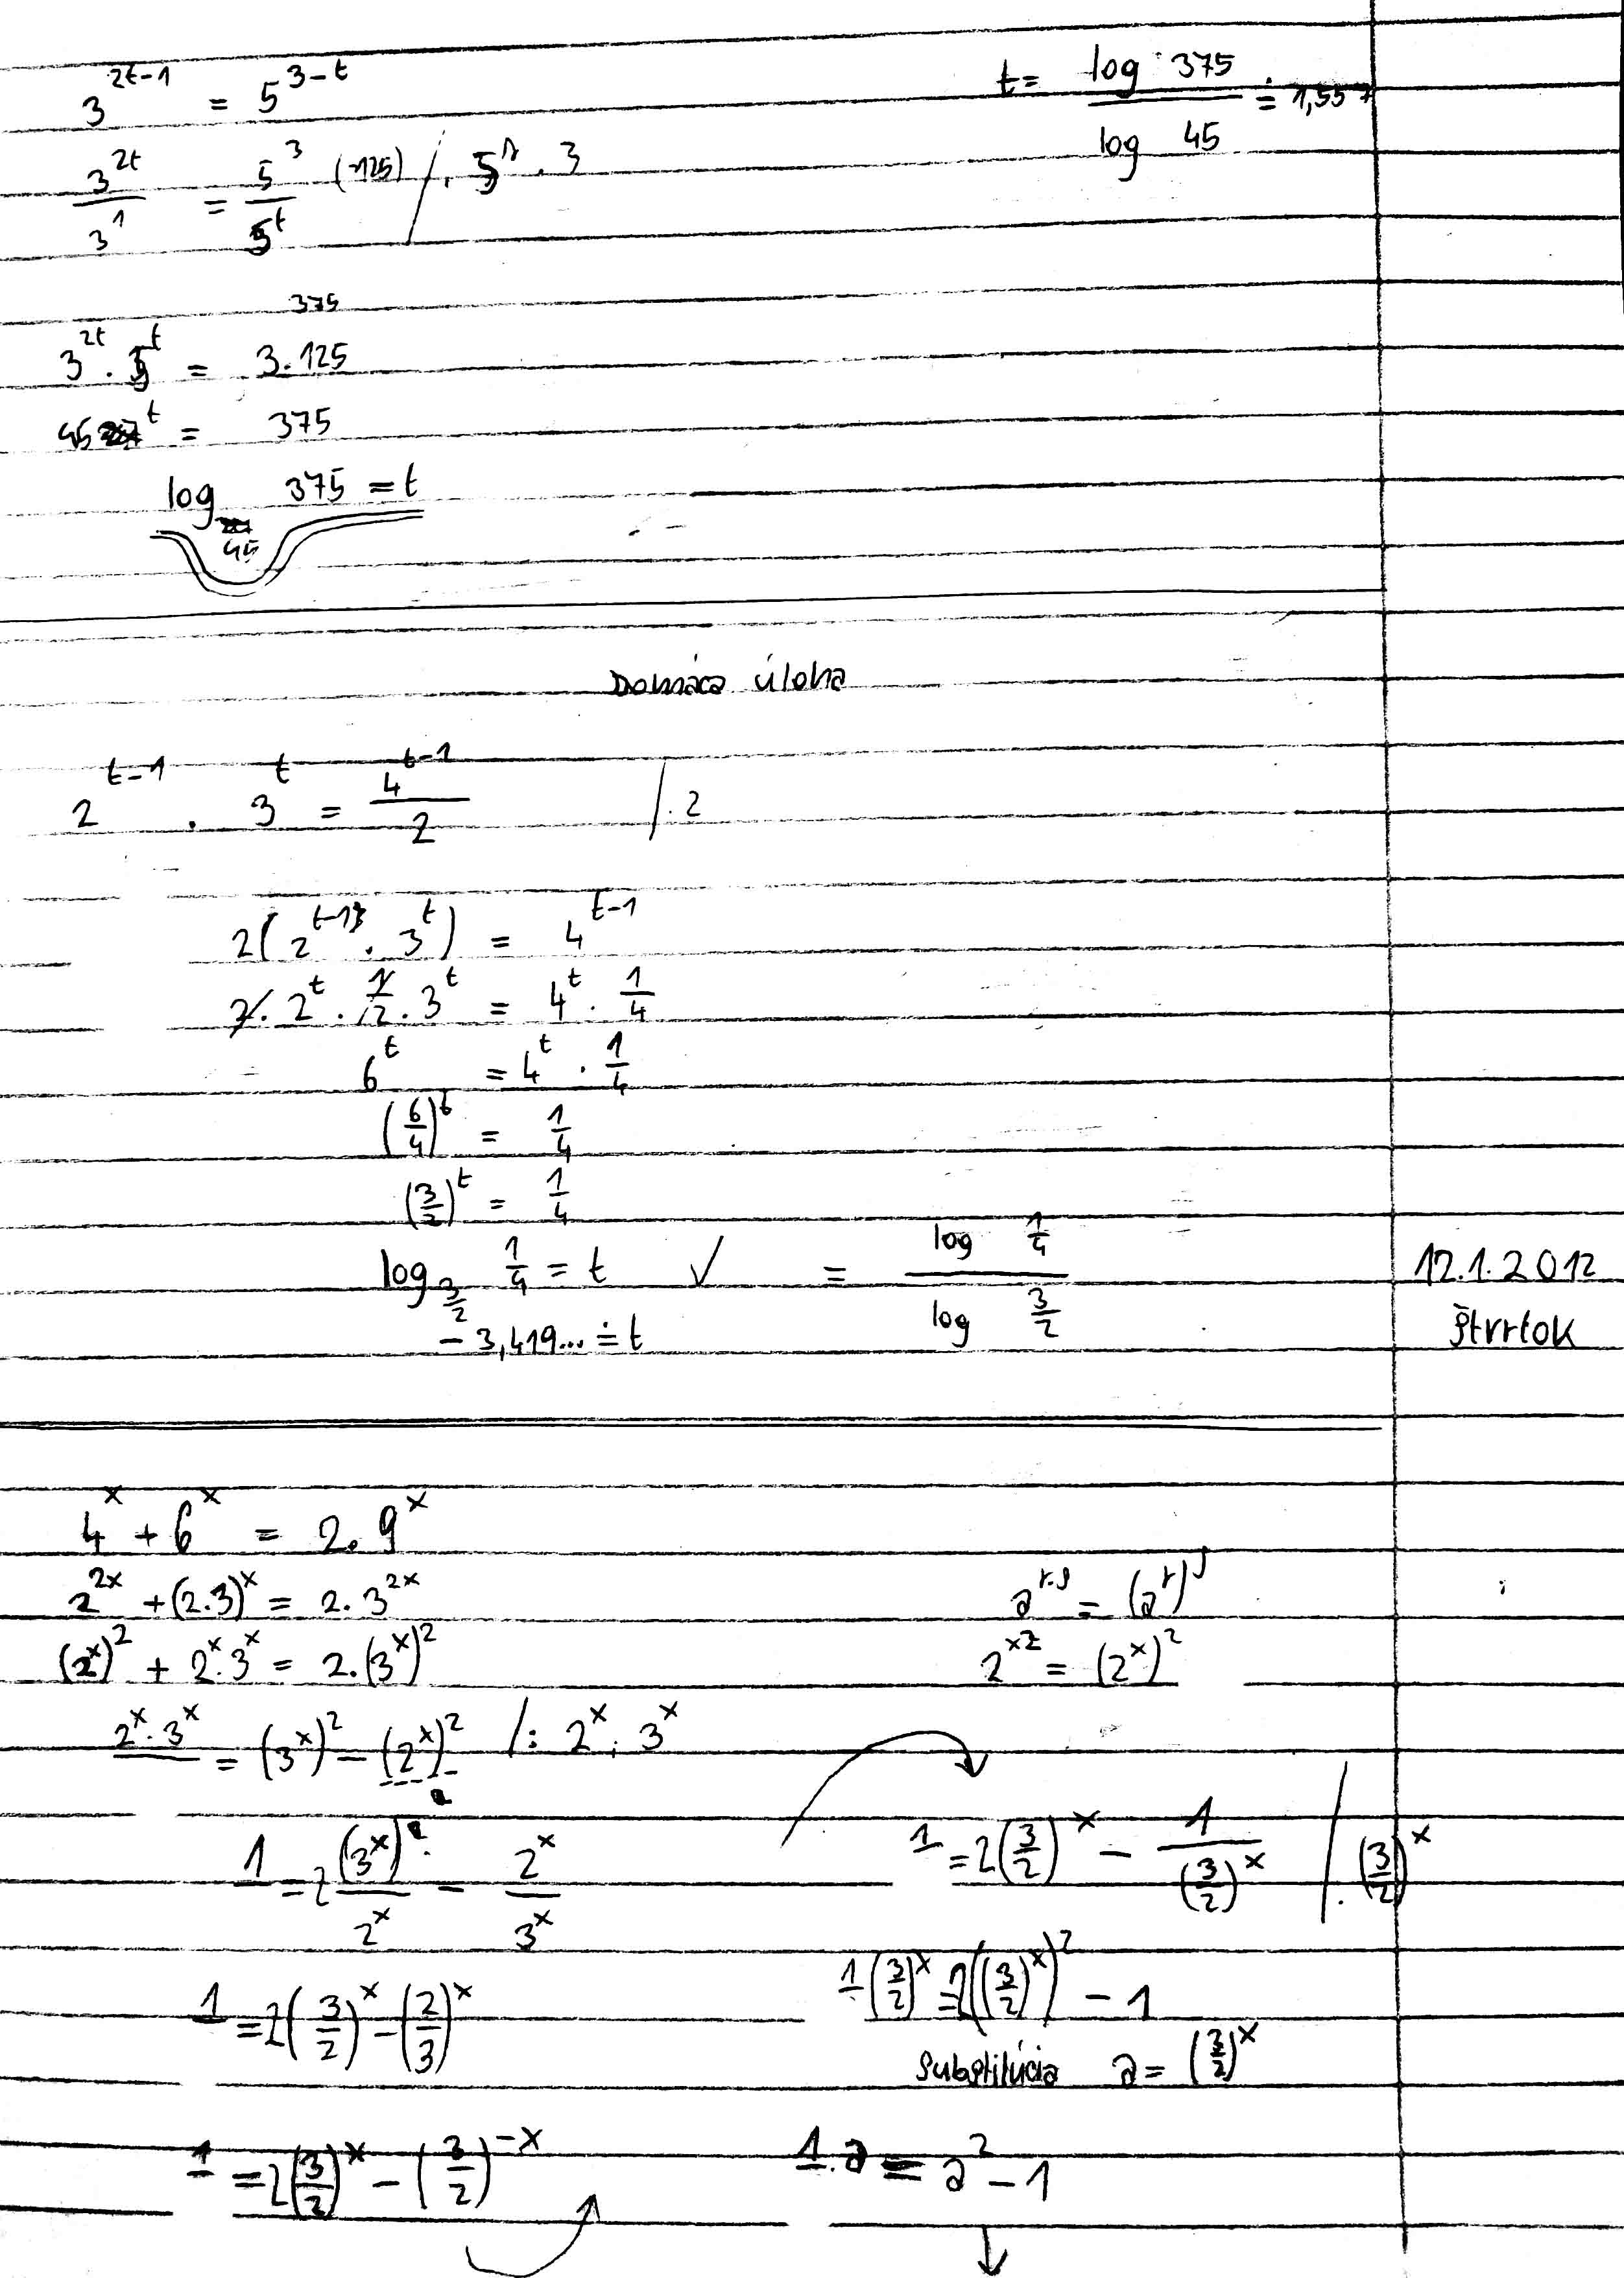 3^{2t-1} = 5^{3-t}
3^{2t}/3^1 = 5^3/5^t (125) / . 5^t . 3
375
3^{2t} . 5^t = 3.125
45^t = 375
log_{45} 375 = t
t = log 375 / log 45 ≐ 1,557
Domáca úloha
2^{t-1} . 3^t = 4^{t-1}/2 / . 2
2(2^{t-1} . 3^t) = 4^{t-1}
2 . 2^t . 1/2 . 3^t = 4^t . 1/4
6^t = 4^t . 1/4
(6/4)^t = 1/4
(3/2)^t = 1/4
log_{3/2} 1/4 = t ✓ = log 1/4 / log 3/2
-3,419... ≐ t
12.1.2012
štvrtok
4^x + 6^x = 2.9^x
2^{2x} + (2.3)^x = 2.3^{2x}
(2^x)^2 + 2^x.3^x = 2.(3^x)^2
2^x.3^x = (3^x)^2 - (2^x)^2 /: 2^x . 3^x
1 = 2 (3^x)/2^x - 2^x/3^x
1 = 2(3/2)^x - (2/3)^x
1 = 2(3/2)^x - (3/2)^{-x}
a^{r.s} = (a^r)^s
2^{x2} = (2^x)^2
1 = 2(3/2)^x - 1/(3/2)^x / . (3/2)^x
1 (3/2)^x = 2((3/2)^x)^2 - 1
Substitúcia a = (3/2)^x
1.a = a^2 - 1